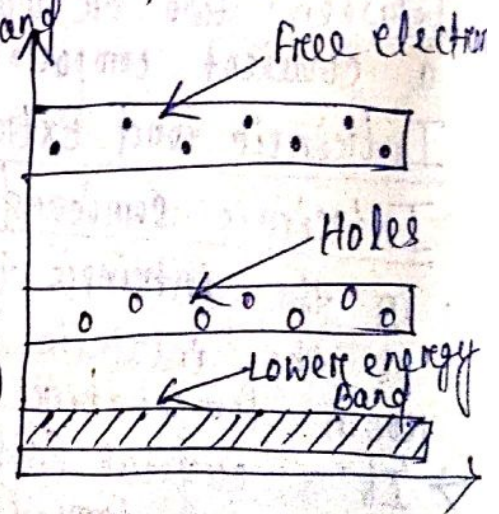 and
Free electron
Holes
Lower energy
Band